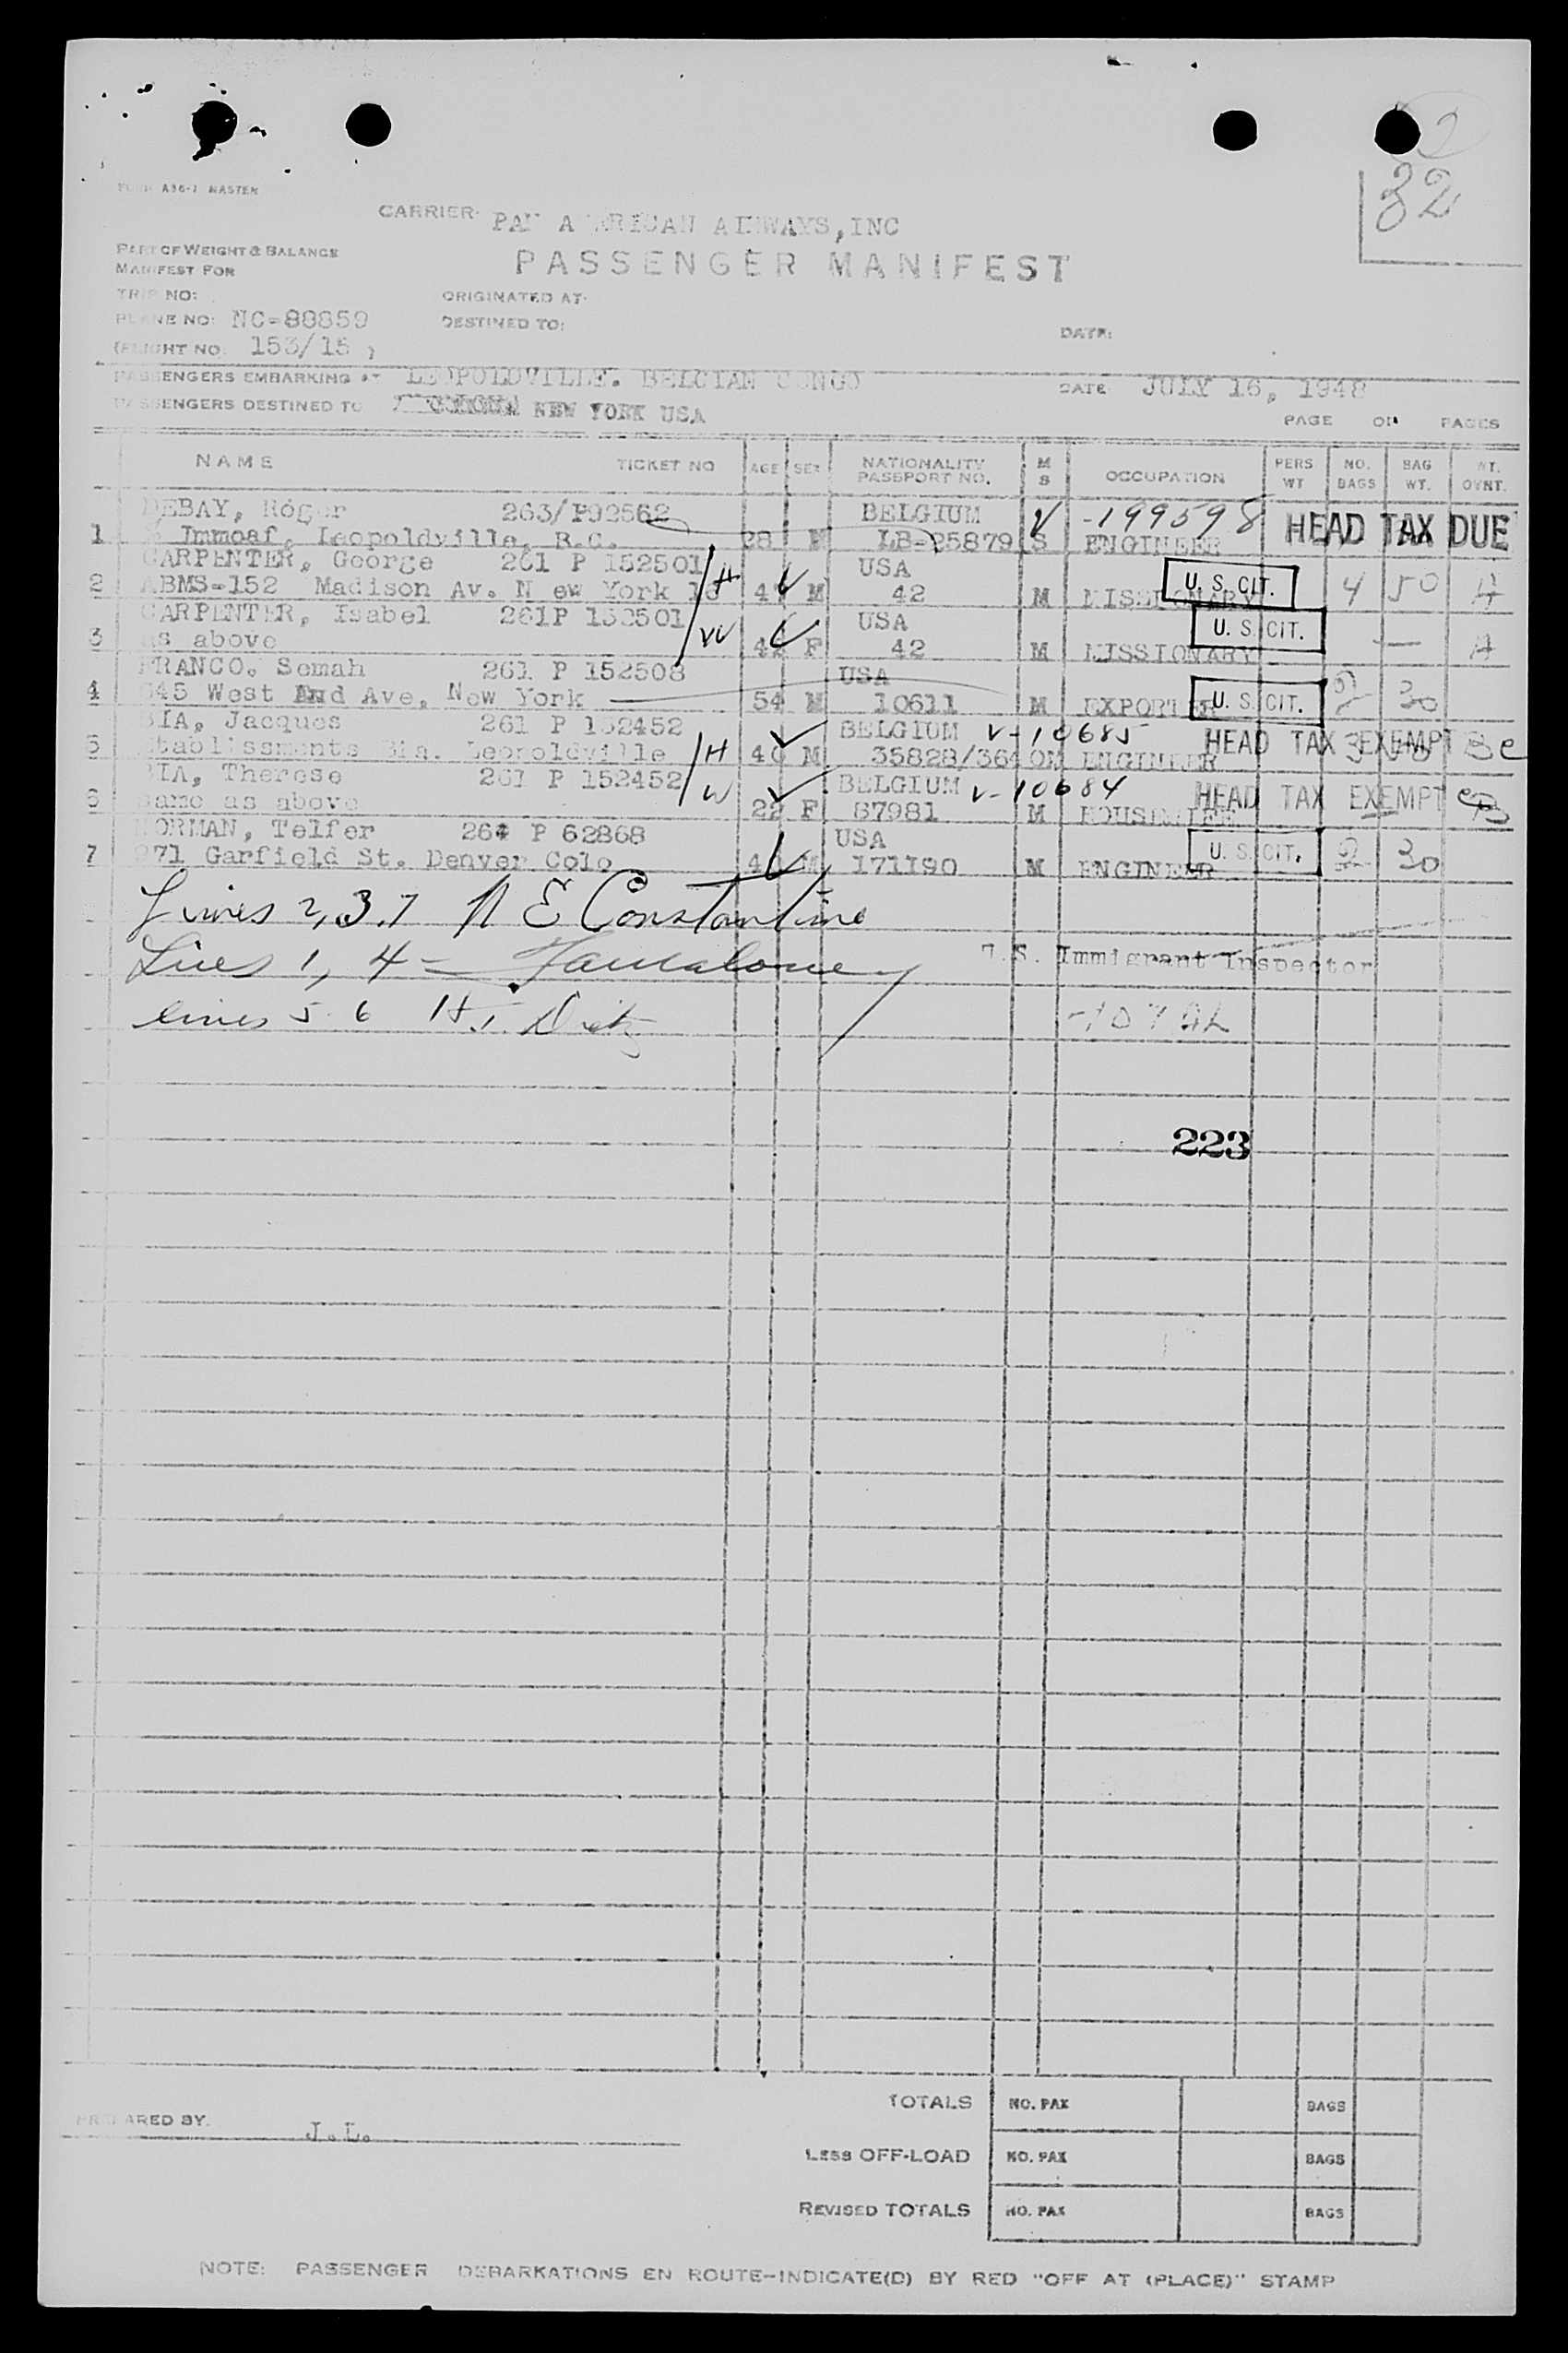 32
A36-1 MASTER
CARRIER: PAN AMERICAN AIRWAYS, INC
PART OF WEIGHT & BALANCE
MANIFEST FOR
PASSENGER MANIFEST
TRIP NO:
ORIGINATED AT:
PLANE NO: NC-88859
DESTINED TO:
DATE:
(FLIGHT NO. 153/15 )
PASSENGERS EMBARKING AT LEOPOLDVILLE. BELGIAN CONGO DATE JULY 16, 1948
PASSENGERS DESTINED TO NEW YORK USA
PAGE OF PAGES
NAME TICKET NO AGE SEX NATIONALITY PASSPORT NO. M S OCCUPATION PERS WT NO. BAGS BAG WT. WT. OVNT.
DEBAY, Roger 263/P92562 BELGIUM V -199598 HEAD TAX DUE
1 % Immoaf, Leopoldville, B.C. 28 M LB-25879 S ENGINEER
CARPENTER, George 261 P 152501 H USA U. S. CIT.
2 ABMS-152 Madison Av. N ew York 16 M 42 M MISSIONARY 4 50
CARPENTER, Isabel 261P 152501 W USA U. S. CIT.
3 as above 42 F 42 M MISSIONARY —
FRANCO. Semah 261 P 152508 USA
4 645 West End Ave, New York 54 M 10611 M EXPORTER U. S. CIT. 2 30
BIA, Jacques 261 P 152452 BELGIUM V-10685 HEAD TAX EXEMPT
5 Etablissments Bia. Leopoldville H 40 M 35828/364 M ENGINEER
BIA, Therese 261 P 152452 W BELGIUM V-10684 HEAD TAX EXEMPT
6 same as above 22 F 87981 M HOUSEWIFE
NORMAN, Telfer 264 P 62868 USA U. S. CIT.
7 971 Garfield St. Denver Colo M 171190 M ENGINEER 2 30
Lines 2, 3. 7 N E Constantine
Lines 1, 4 -
U.S. Immigrant Inspector
lines 5. 6 H.J. Dietz
223
TOTALS NO. PAX BAGS
PREPARED BY. J.L.
LESS OFF-LOAD NO. PAX BAGS
REVISED TOTALS NO. PAX BAGS
NOTE: PASSENGER DEBARKATIONS EN ROUTE-INDICATE(D) BY RED "OFF AT (PLACE)" STAMP